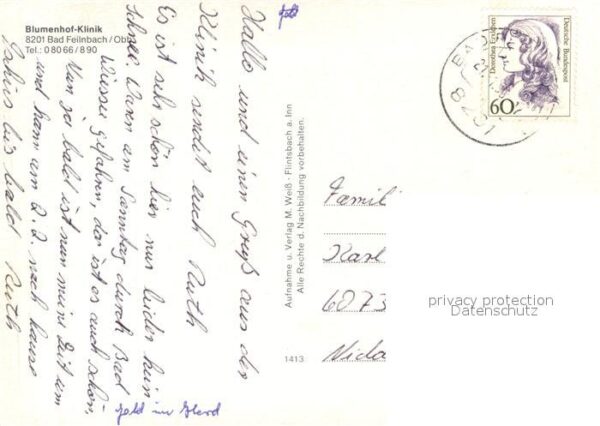 Blumenhof-Klinik
8201 Bad Feilnbach/Obb.
Tel.: 0 80 66 / 8 90
Hallo und einen Gruß aus der
Klinik sendet euch Ruth
Es ist sehr schön hier nur leider kein
Schnee. Waren am Sonntag durch Bad
Wiessee gefahren, da ist es auch schön.
Nun ja bald ist nun meine Zeit um
und kann am 2.2. nach hause
bis bald Ruth
Geld
Geld im
Aufnahme u. Verlag M. Weiß · Flintsbach a. Inn
Alle Rechte d. Nachbildung vorbehalten.
1413
Deutsche Bundespost
60
8201
Famil
Karl
6073
privacy protection
Datenschutz